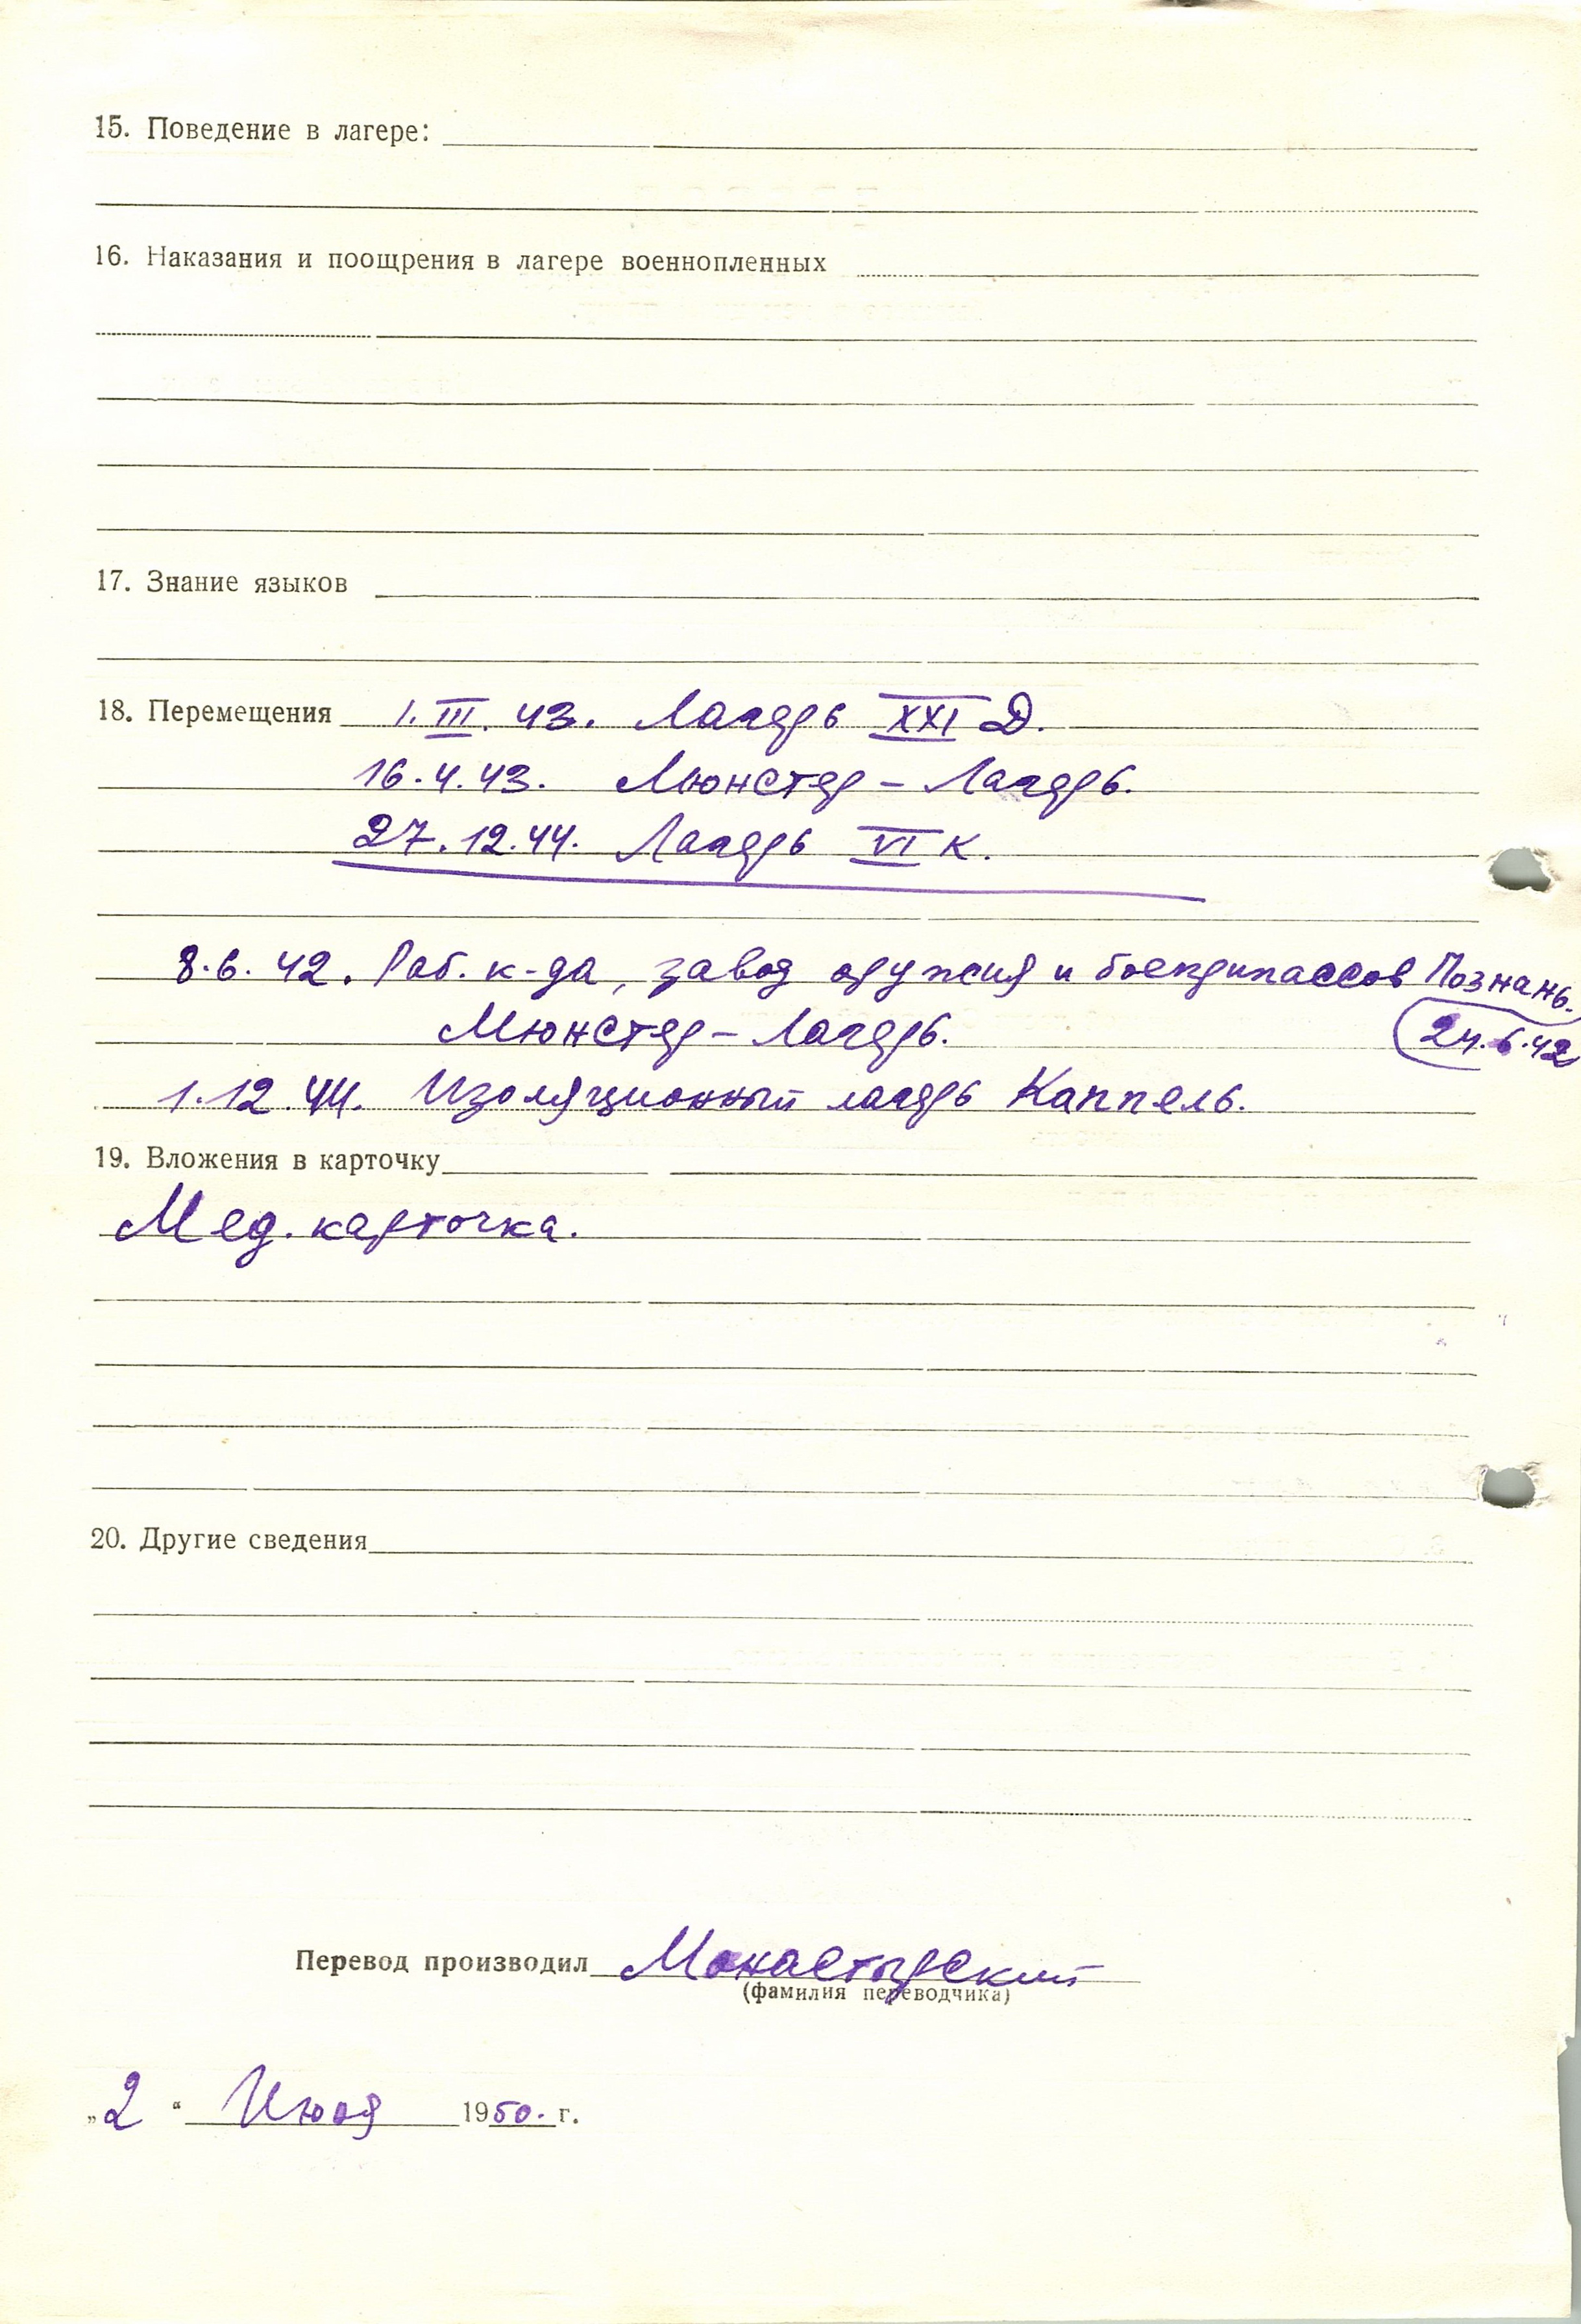 15. Поведение в лагере:
16. Наказания и поощрения в лагере военнопленных
17. Знание языков
18. Перемещения 1.III.43. Лагерь XXI Д.
16.4.43. Мюнстер – Лагерь.
27.12.44. Лагерь VI К.
8.6.42. Раб. к-да, завод оружия и боеприпассов Познань.
Мюнстер – Лагерь. 24.6.42
1.12.44. Изоляционный лагерь Каппель.
19. Вложения в карточку
Мед. карточка.
20. Другие сведения
Перевод производил Монастырский
(фамилия переводчика)
„2“ Июля 1950. г.